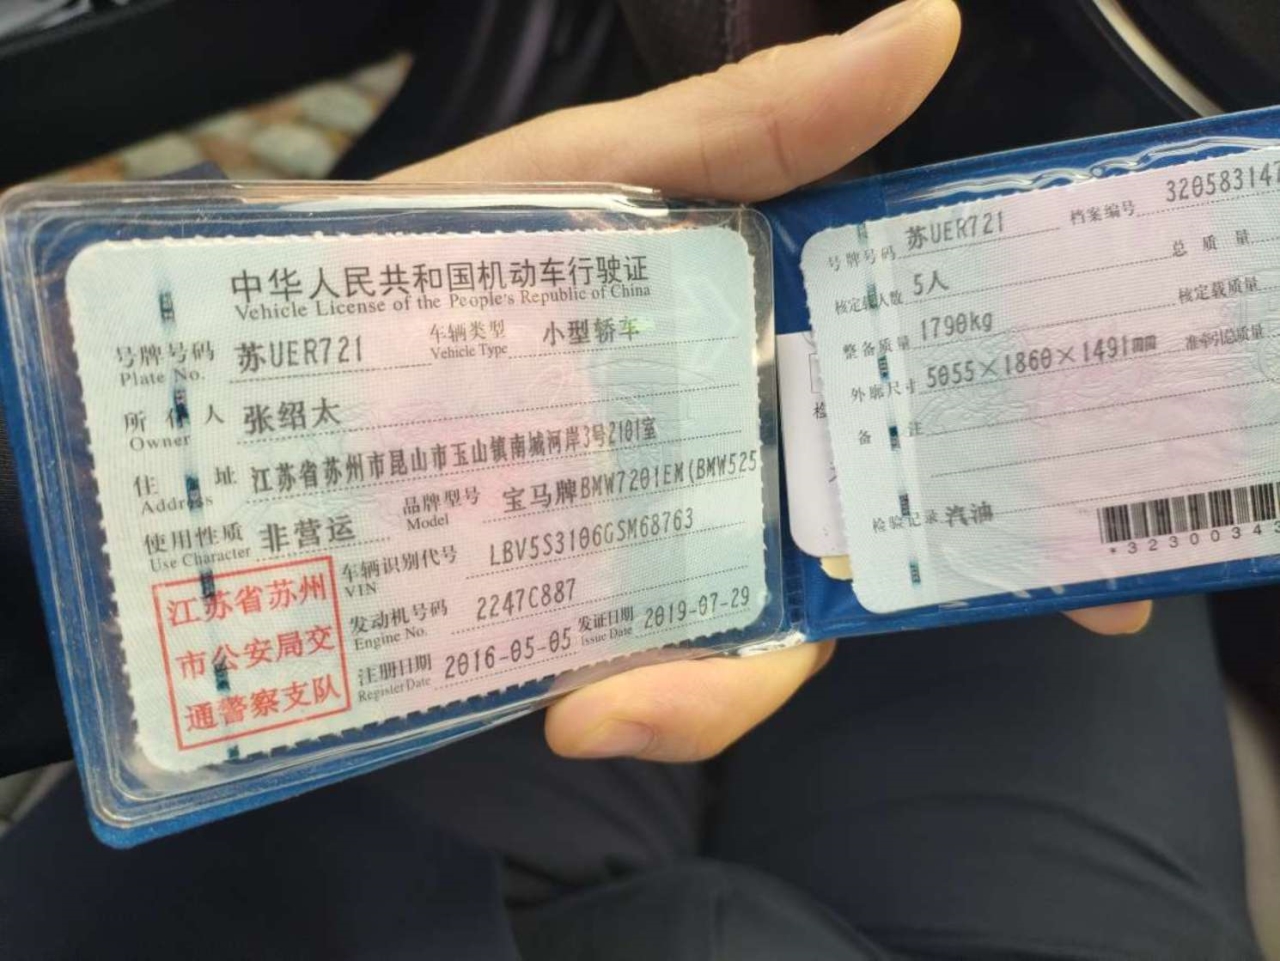 中华人民共和国机动车行驶证
Vehicle License of the People's Republic of China
号牌号码 苏UER721 车辆类型 小型轿车
Plate No. Vehicle Type
所有人 张绍太
Owner
住址 江苏省苏州市昆山市玉山镇南城河岸3号2101室
Address
使用性质 非营运 品牌型号 宝马牌BMW7201EM(BMW525
Use Character Model
车辆识别代号 LBV5S3106GSM68763
VIN
发动机号码 2247C887
Engine No.
注册日期 2016-05-05 发证日期 2019-07-29
Register Date Issue Date
江苏省苏州
市公安局交
通警察支队
号牌号码 苏UER721 档案编号 320583147
核定载人数 5人 总质量
整备质量 1790kg 核定载质量
外廓尺寸 5055×1860×1491mm 准牵引总质量
备注
检验记录 汽油
*3230034
检